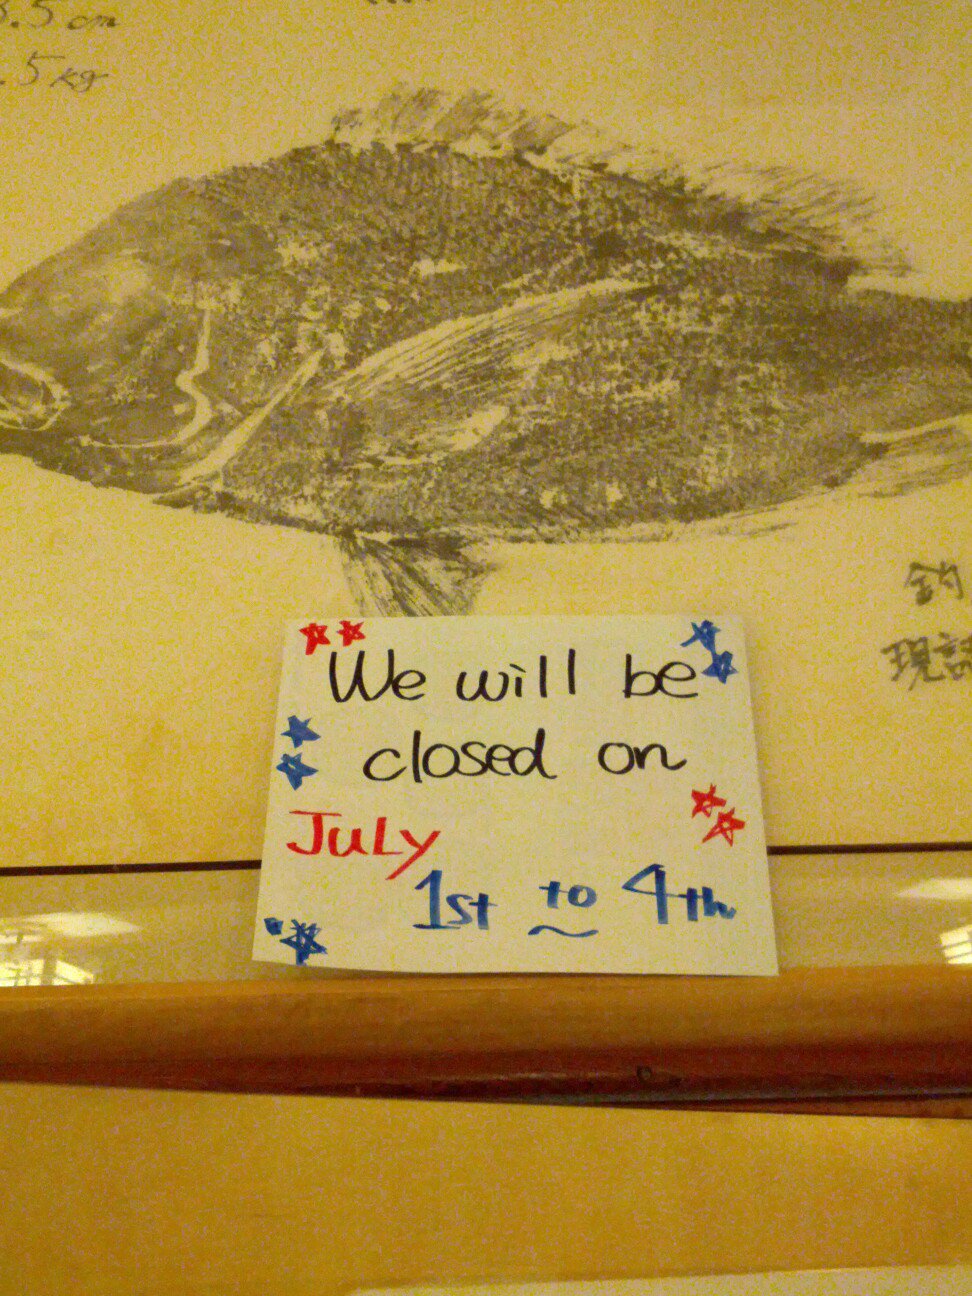 .5 cm
.5 kg
釣
現
We will be
closed on
July
1st to 4th